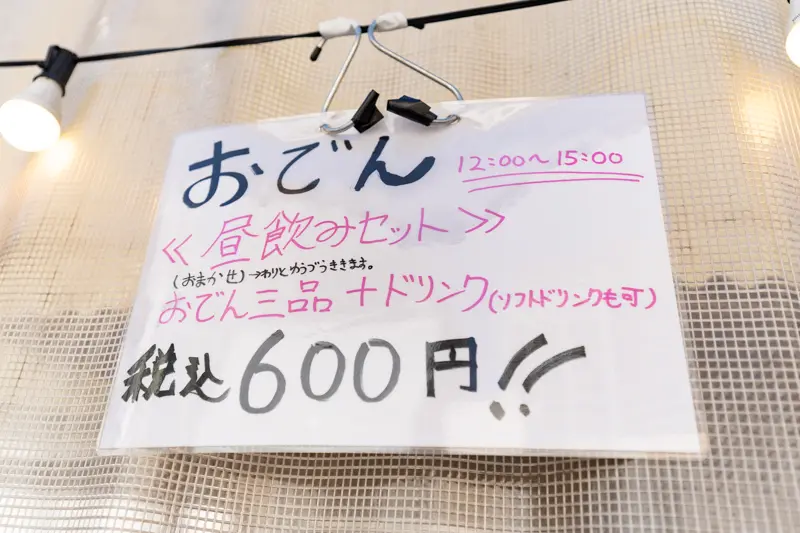 おでん 12:00〜15:00
≪昼飲みセット≫
(おまかせ)→わりとゆうづうききます。
おでん三品+ドリンク(ソフトドリンクも可)
税込600円!!